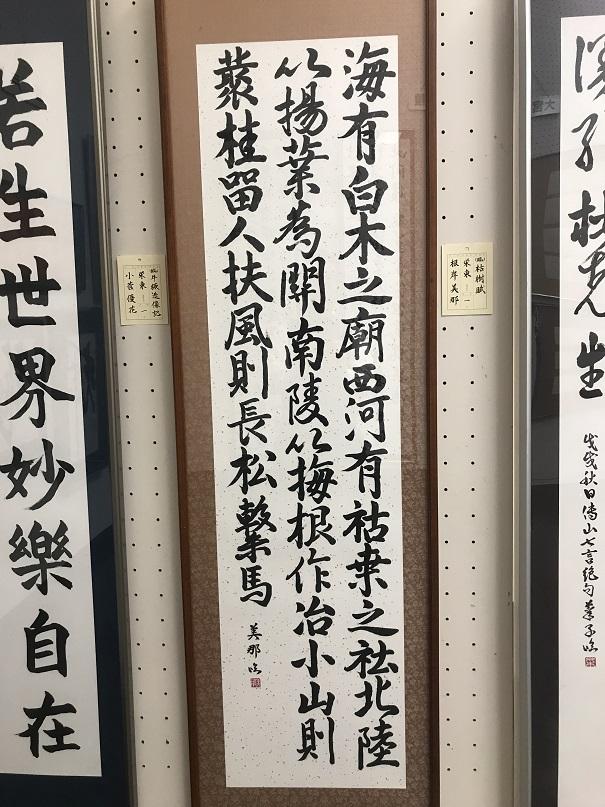 戊戌秋日傅山七言絶句
(臨)枯樹賦
栄東 一
根岸美那
海有白木之廟西河有枯桒之社北陸
以揚葉為關南陵以梅根作冶小山則
叢桂留人扶風則長松繫馬
美那臨
(臨)牛橛造像記
栄東 一
小菅優花
若生世界妙樂自在